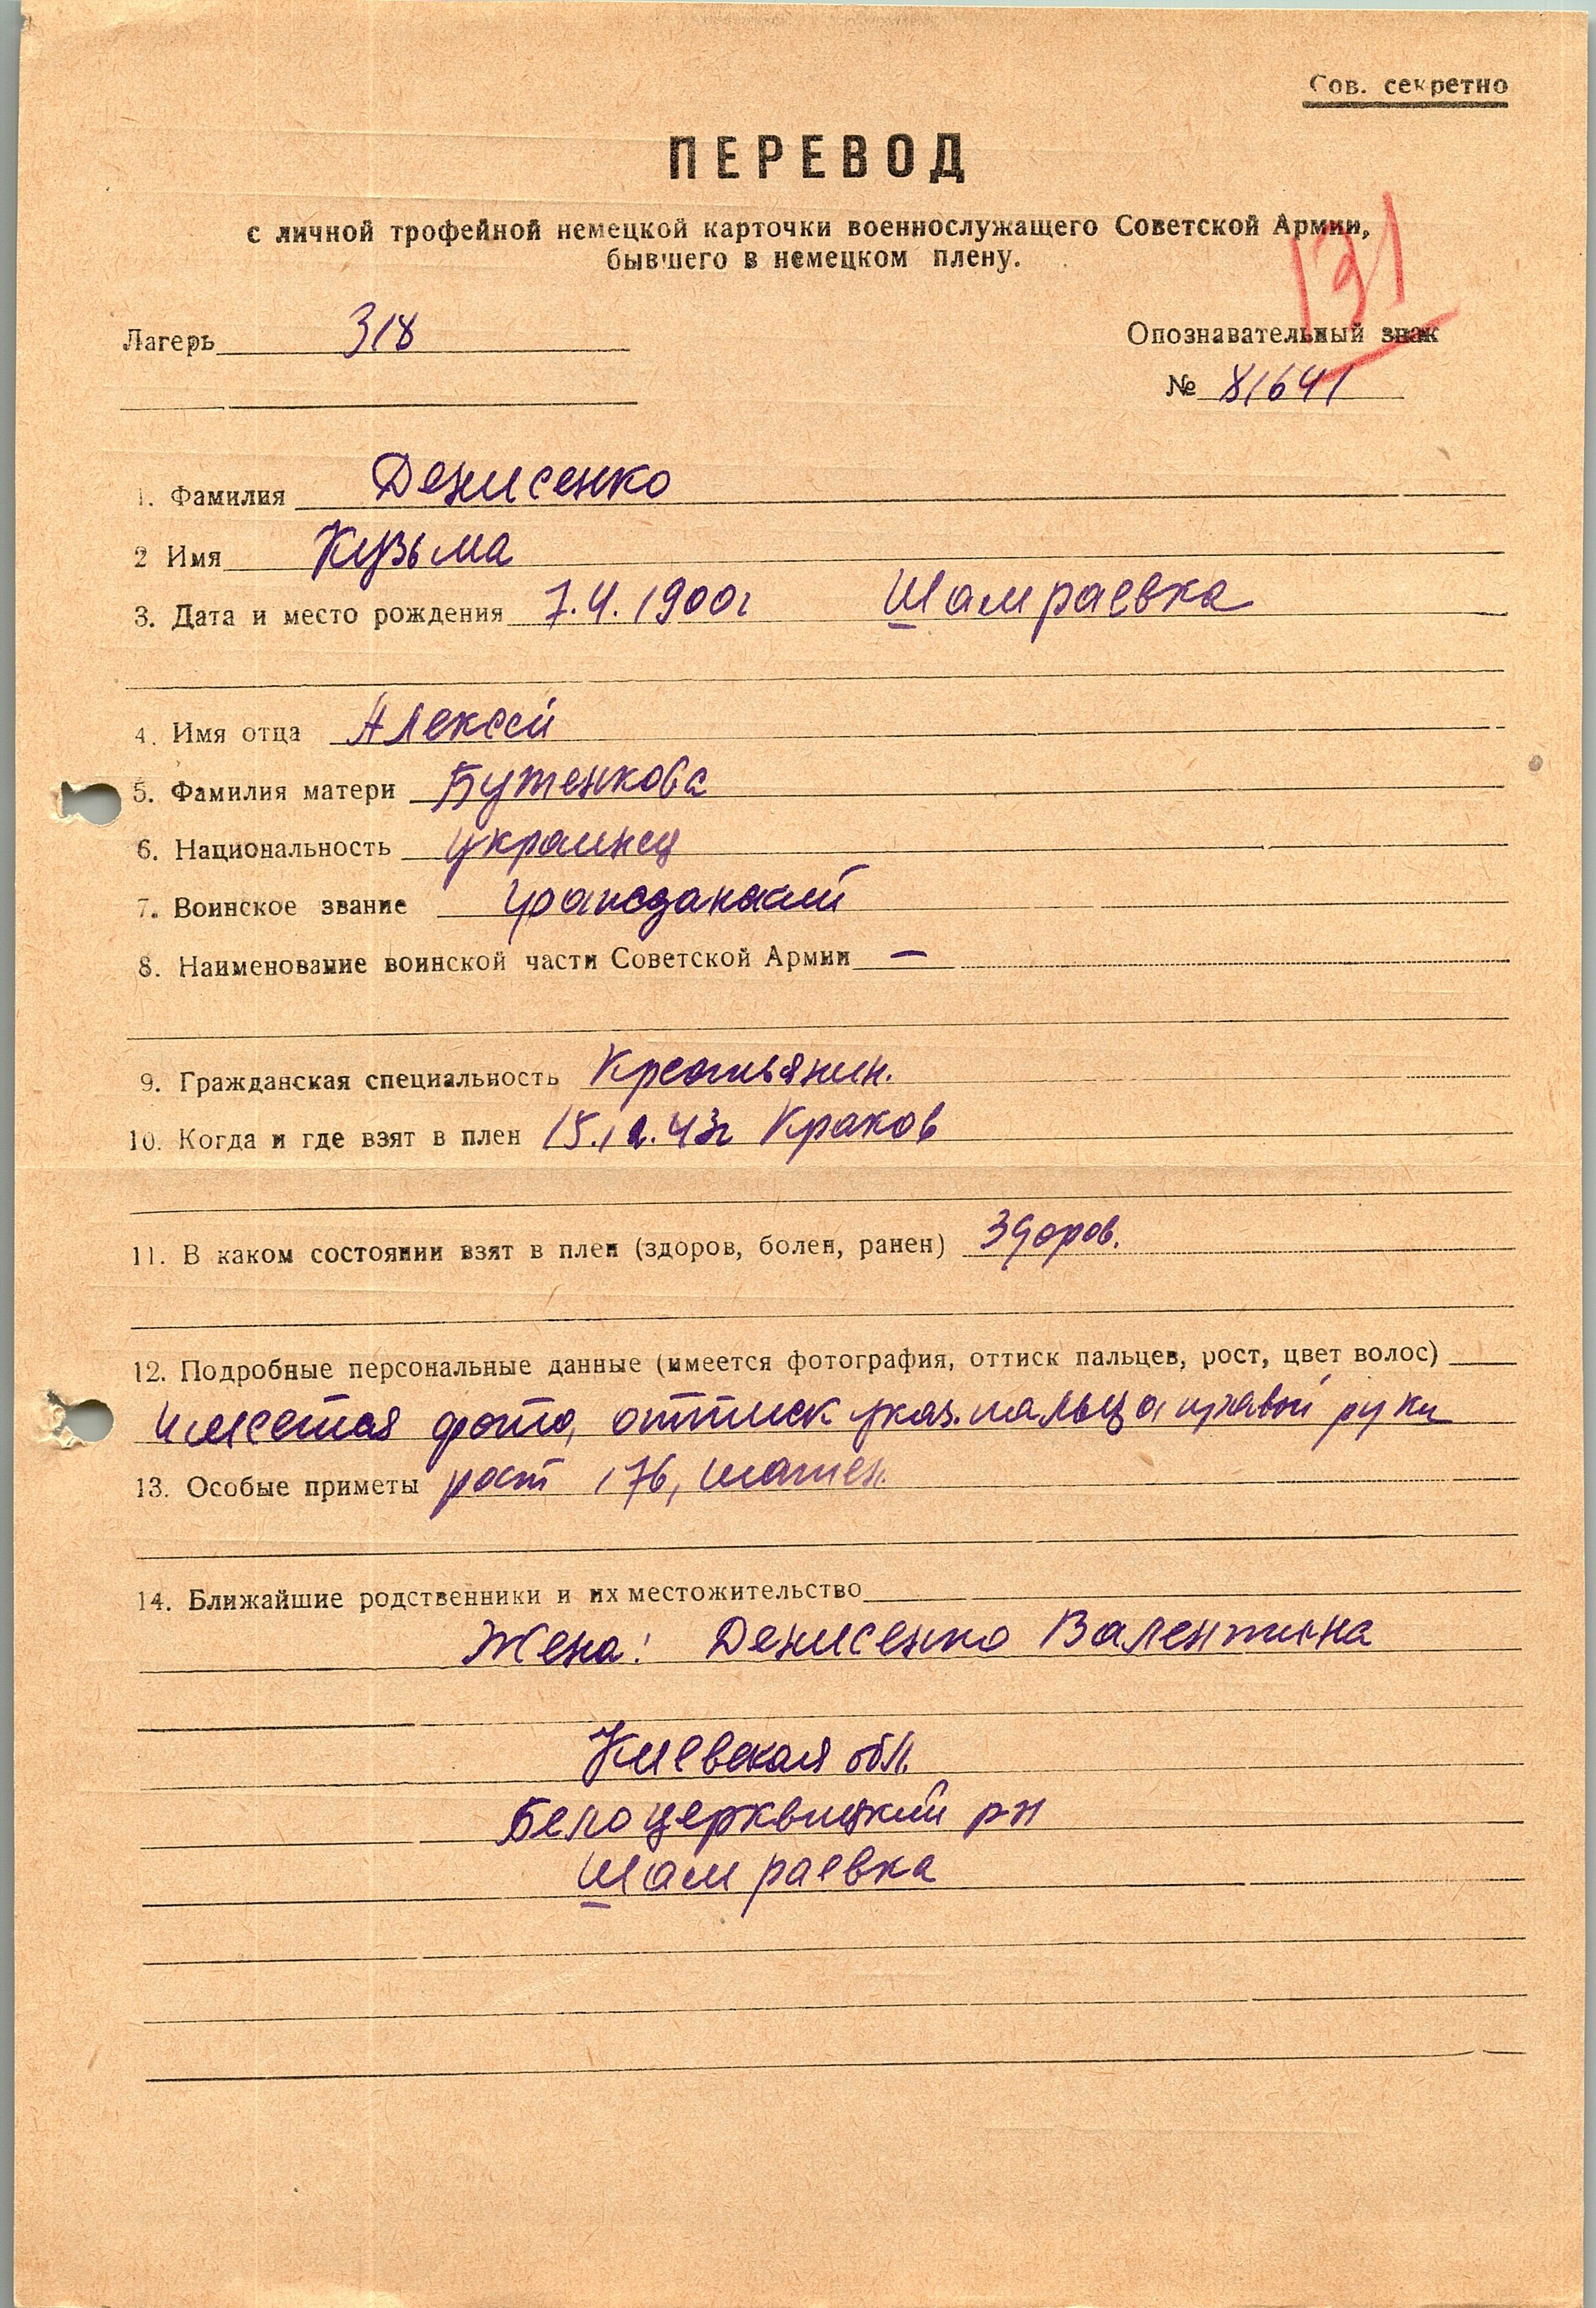 Сов. секретно
ПЕРЕВОД
с личной трофейной немецкой карточки военнослужащего Советской Армии,
бывшего в немецком плену.
Лагерь 318
Опознавательный знак
№ 81641
1. Фамилия Денисенко
2 Имя Кузьма
3. Дата и место рождения 7.4.1900г Шамраевка
4. Имя отца Алексей
5. Фамилия матери Бутенкова
6. Национальность украинец
7. Воинское звание гражданский
8. Наименование воинской части Советской Армии —
9. Гражданская специальность Крестьянин.
10. Когда и где взят в плен 43г Краков
11. В каком состоянии взят в плен (здоров, болен, ранен) Здоров.
12. Подробные персональные данные (имеется фотография, оттиск пальцев, рост, цвет волос)
имеется фото, оттиск указ. пальца правой руки
13. Особые приметы рост 176, шатен.
14. Ближайшие родственники и их местожительство
Жена: Денисенко Валентина
Киевская обл.
Белоцерквицкий р-н
Шамраевка